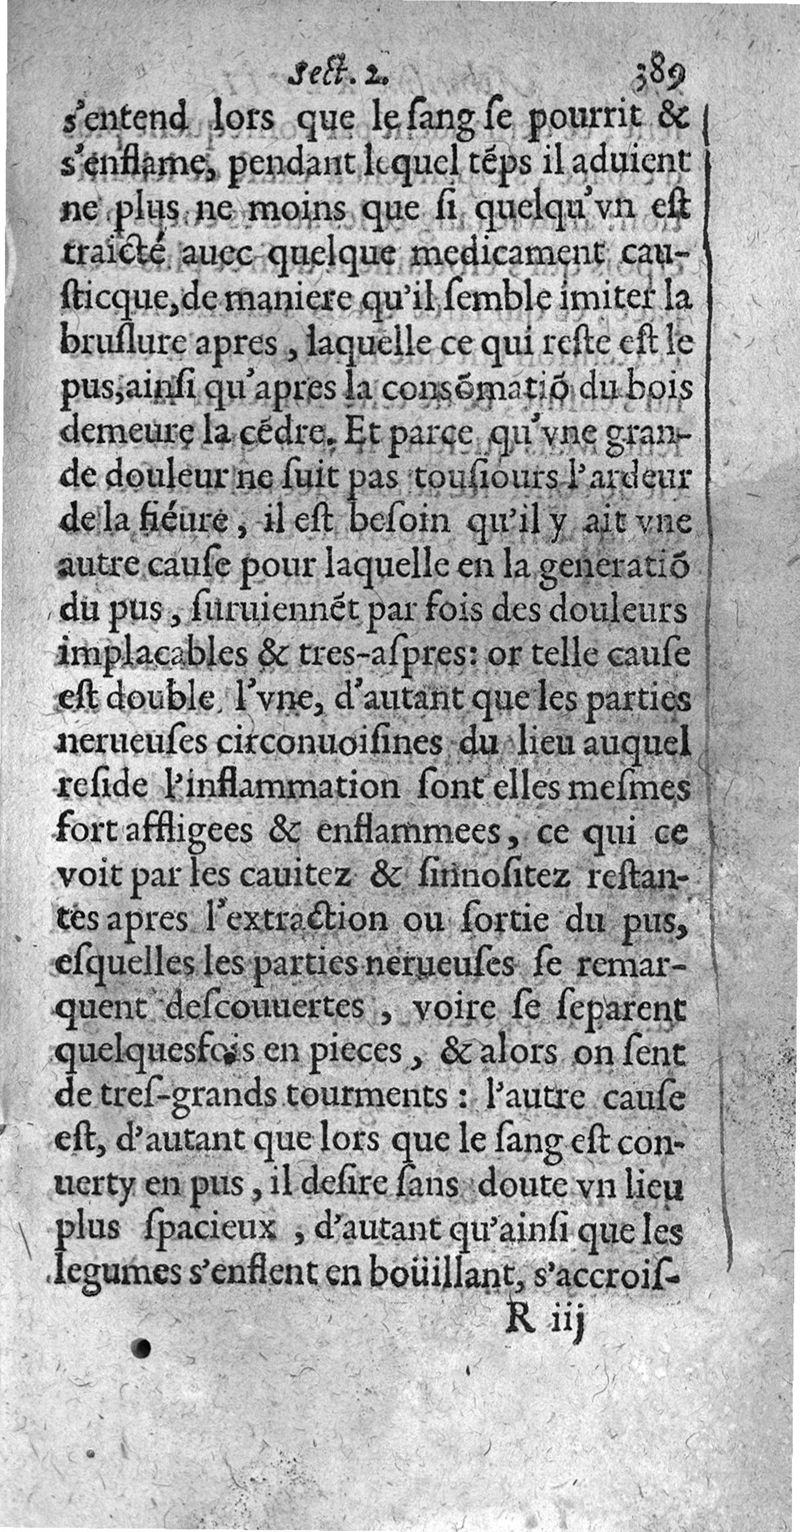 Sect. 2. 389
s'entend lors que le ſang ſe pourrit &
s'enflame, pendant lequel tẽps il aduient
ne plus ne moins que ſi quelqu'vn eſt
traicté auec quelque medicament cau-
ſticque, de maniere qu'il ſemble imiter la
bruſlure apres, laquelle ce qui reſte eſt le
pus, ainſi qu'apres la consõmatiõ du bois
demeure la cẽdre. Et parce qu'vne gran-
de douleur ne ſuit pas touſiours l'ardeur
de la fiéure, il eſt beſoin qu'il y ait vne
autre cauſe pour laquelle en la generatiõ
du pus, ſuruiennẽt par fois des douleurs
implacables & tres-aſpres: or telle cauſe
eſt double, l'vne, d'autant que les parties
nerueuſes circonuoiſines du lieu auquel
reſide l'inflammation ſont elles meſmes
fort affligees & enflammees, ce qui ce
voit par les cauitez & ſinnoſitez reſtan-
tes apres l'extraction ou ſortie du pus,
eſquelles les parties nerueuſes ſe remar-
quent deſcouuertes, voire ſe ſeparent
quelquesfois en pieces, & alors on ſent
de treſ-grands tourments: l'autre cauſe
eſt, d'autant que lors que le ſang eſt con-
uerty en pus, il deſire ſans doute vn lieu
plus ſpacieux, d'autant qu'ainſi que les
legumes s'enflent en boüillant, s'accroiſ-
R iij